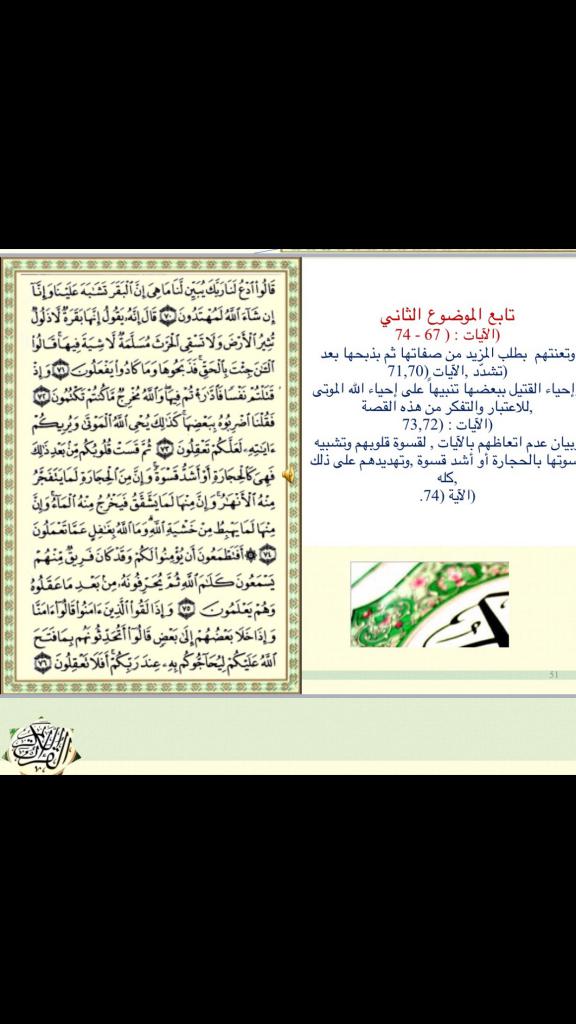 قَالُوا۟ ٱدْعُ لَنَا رَبَّكَ يُبَيِّن لَّنَا مَا هِىَ إِنَّ ٱلْبَقَرَ تَشَٰبَهَ عَلَيْنَا وَإِنَّآ
إِن شَآءَ ٱللَّهُ لَمُهْتَدُونَ ٧٠ قَالَ إِنَّهُۥ يَقُولُ إِنَّهَا بَقَرَةٌ لَّا ذَلُولٌ
تُثِيرُ ٱلْأَرْضَ وَلَا تَسْقِى ٱلْحَرْثَ مُسَلَّمَةٌ لَّا شِيَةَ فِيهَا ۚ قَالُوا۟
ٱلْـَٰٔنَ جِئْتَ بِٱلْحَقِّ ۚ فَذَبَحُوهَا وَمَا كَادُوا۟ يَفْعَلُونَ ٧١ وَإِذْ
قَتَلْتُمْ نَفْسًا فَٱدَّٰرَْٰٔتُمْ فِيهَا ۖ وَٱللَّهُ مُخْرِجٌ مَّا كُنتُمْ تَكْتُمُونَ ٧٢
فَقُلْنَا ٱضْرِبُوهُ بِبَعْضِهَا ۚ كَذَٰلِكَ يُحْىِ ٱللَّهُ ٱلْمَوْتَىٰ وَيُرِيكُمْ
ءَايَٰتِهِۦ لَعَلَّكُمْ تَعْقِلُونَ ٧٣ ثُمَّ قَسَتْ قُلُوبُكُم مِّنۢ بَعْدِ ذَٰلِكَ
فَهِىَ كَٱلْحِجَارَةِ أَوْ أَشَدُّ قَسْوَةً ۚ وَإِنَّ مِنَ ٱلْحِجَارَةِ لَمَا يَتَفَجَّرُ
مِنْهُ ٱلْأَنْهَٰرُ ۚ وَإِنَّ مِنْهَا لَمَا يَشَّقَّقُ فَيَخْرُجُ مِنْهُ ٱلْمَآءُ ۚ وَإِنَّ
مِنْهَا لَمَا يَهْبِطُ مِنْ خَشْيَةِ ٱللَّهِ ۗ وَمَا ٱللَّهُ بِغَٰفِلٍ عَمَّا تَعْمَلُونَ
٧٤ ۞ أَفَتَطْمَعُونَ أَن يُؤْمِنُوا۟ لَكُمْ وَقَدْ كَانَ فَرِيقٌ مِّنْهُمْ
يَسْمَعُونَ كَلَٰمَ ٱللَّهِ ثُمَّ يُحَرِّفُونَهُۥ مِنۢ بَعْدِ مَا عَقَلُوهُ
وَهُمْ يَعْلَمُونَ ٧٥ وَإِذَا لَقُوا۟ ٱلَّذِينَ ءَامَنُوا۟ قَالُوٓا۟ ءَامَنَّا
وَإِذَا خَلَا بَعْضُهُمْ إِلَىٰ بَعْضٍ قَالُوٓا۟ أَتُحَدِّثُونَهُم بِمَا فَتَحَ
ٱللَّهُ عَلَيْكُمْ لِيُحَآجُّوكُم بِهِۦ عِندَ رَبِّكُمْ ۚ أَفَلَا تَعْقِلُونَ ٧٦
تابع الموضوع الثاني
(الآيات : ( 67 - 74
وتعنتهم بطلب المزيد من صفاتها ثم بذبحها بعد
(تشدّد ,الآيات (71,70
إحياء القتيل ببعضها تنبيهاً على إحياء الله الموتى
,للاعتبار والتفكر من هذه القصة
(الآيات : (73,72
وبيان عدم اتعاظهم بالآيات , لقسوة قلوبهم وتشبيه
قسوتها بالحجارة أو أشد قسوة ,وتهديدهم على ذلك
,كله
(الآية (74.
51
القرآن